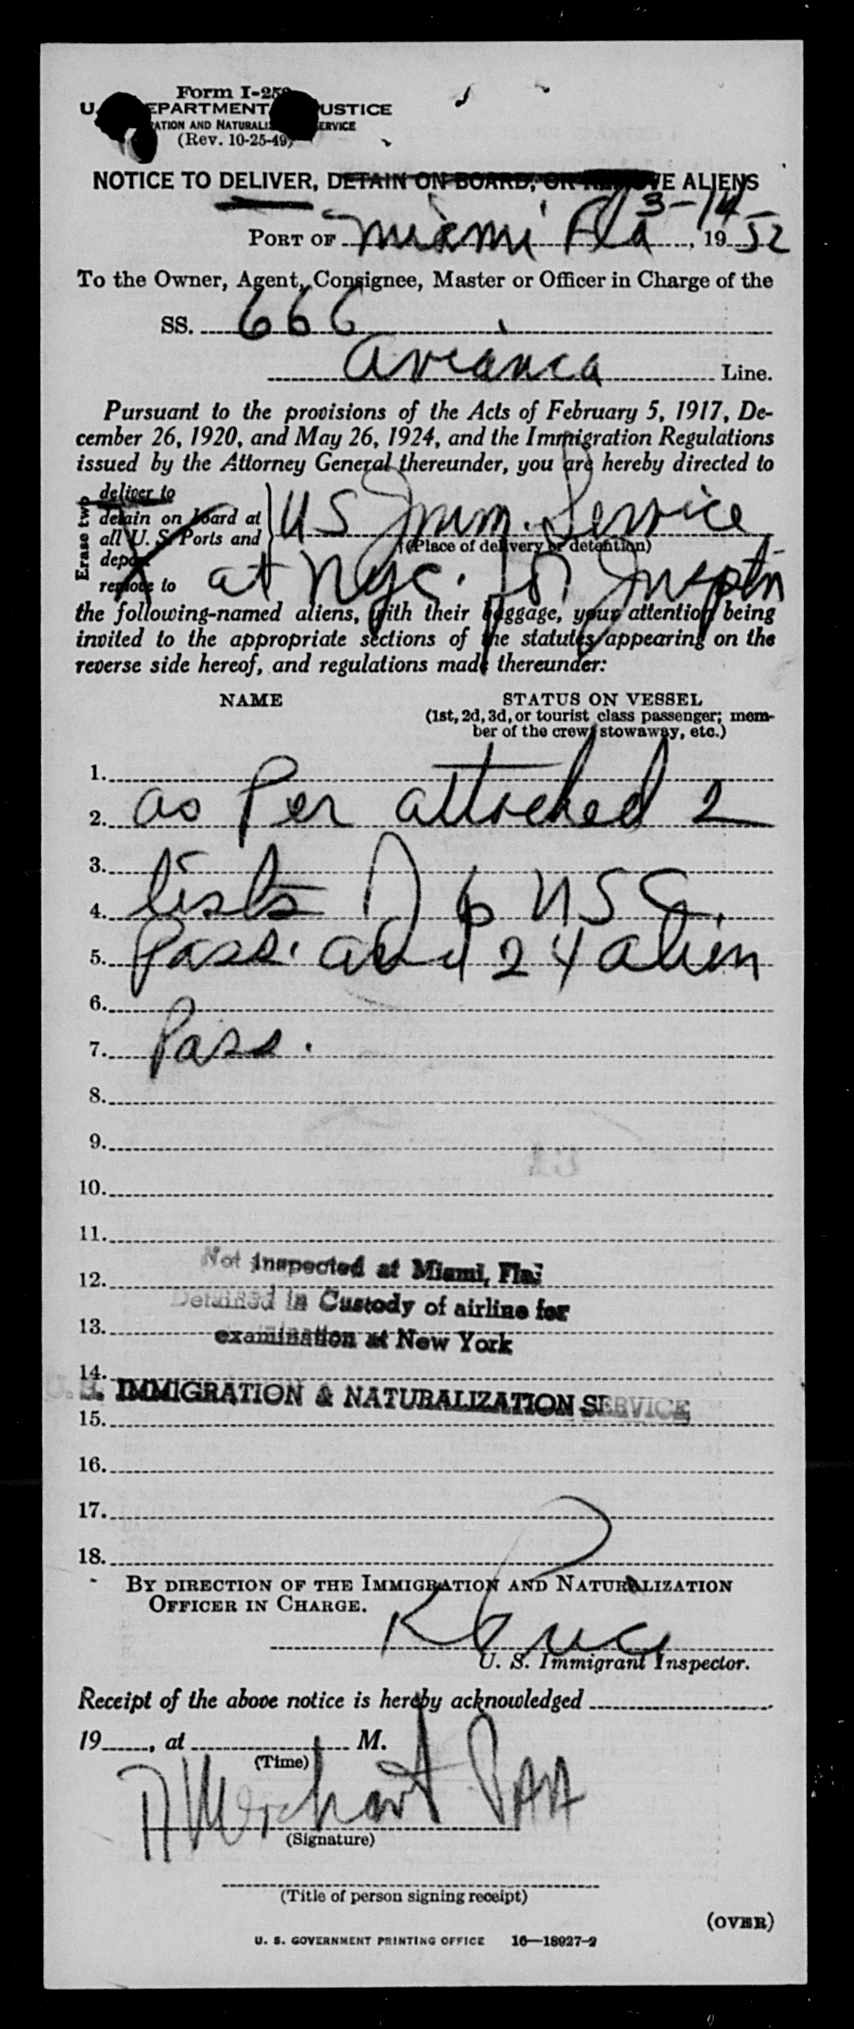 Form I-259
U. DEPARTMENT JUSTICE
ATION AND NATURALI SERVICE
(Rev. 10-25-49)
NOTICE TO DELIVER, DETAIN ON BOARD, OR REMOVE ALIENS
PORT OF Miami Fla 3-14, 1952
To the Owner, Agent, Consignee, Master or Officer in Charge of the
SS. 666
Avianca Line.
Pursuant to the provisions of the Acts of February 5, 1917, De-
cember 26, 1920, and May 26, 1924, and the Immigration Regulations
issued by the Attorney General thereunder, you are hereby directed to
Erase two
deliver to
detain on board at
all U. S. Ports and
deport
remove to
US Imm. Service
(Place of delivery or detention)
at Nyc. for Insptn
the following-named aliens, with their baggage, your attention being
invited to the appropriate sections of the statutes appearing on the
reverse side hereof, and regulations made thereunder:
NAME STATUS ON VESSEL
(1st, 2d, 3d, or tourist class passenger; mem-
ber of the crew, stowaway, etc.)
1.
2. as Per attached 2
3.
4. lists 6 USC.
5. Pass. and 24 alien
6.
7. Pass.
8.
9.
10.
11.
Not Inspected at Miami, Fla.
12.
Detained in Custody of airline for
13.
examination at New York
14.
U. S. IMMIGRATION & NATURALIZATION SERVICE
15.
16.
17.
18.
BY DIRECTION OF THE IMMIGRATION AND NATURALIZATION
OFFICER IN CHARGE.
U. S. Immigrant Inspector.
Receipt of the above notice is hereby acknowledged
19, at M.
(Time)
Merchant PAA
(Signature)
(Title of person signing receipt)
(OVER)
U. S. GOVERNMENT PRINTING OFFICE 16—18927-2